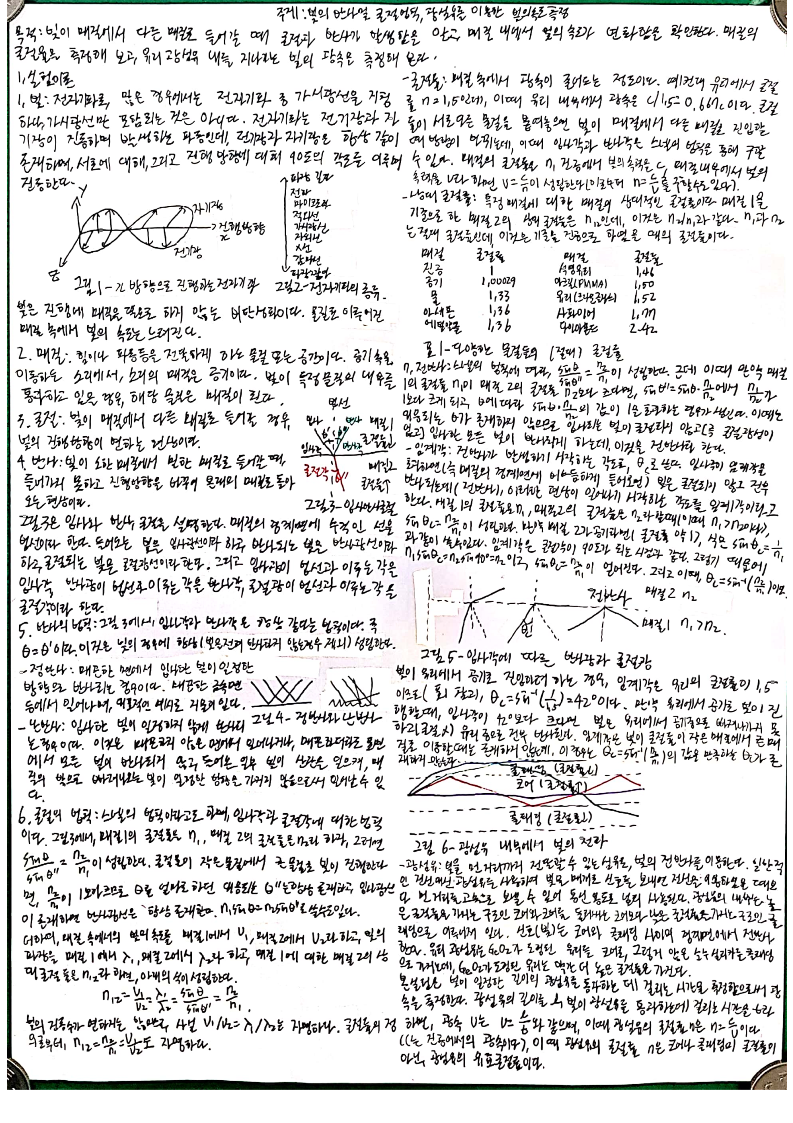 주제: 빛의 반사및 굴절법칙, 광섬유를 이용한 빛의속도측정
목적: 빛이 매질에서 다른 매질로 들어갈 때 굴절과 반사가 발생함을 알고, 매질 내에서 빛의 속도가 변화함을 확인한다. 매질의
굴절률을 측정해 보고, 유리 광섬유 내를 지나가는 빛의 광속을 측정해 본다.
1. 실험이론
1. 빛: 전자기파로, 많은 경우에서는 전자기파 중 가시광선을 지칭
하나, 가시광선만 포함되는 것은 아니다. 전자기파는 전기장과 자
기장이 진동하며 발생하는 파동인데, 전기장과 자기장은 항상 같이
존재하며, 서로에 대해, 그리고 진행 방향에 대해 90도의 각도를 이루며
진동한다.
Y
자기장
진행방향
x
전기장
Z
파장 길다
전파
마이크로파
적외선
가시광선
자외선
X선
감마선
파장짧다
그림 1 - x 방향으로 진행하는 전자기파
그림2 - 전자기파의 종류
빛은 진행에 매질을 필요로 하지 않는 비탄성파이다. 물질로 이루어진
매질 속에서 빛의 속도는 느려진다.
2. 매질: 힘이나 파동등을 전달하게 하는 물질 또는 공간이다. 공기 속을
이동하는 소리에서, 소리의 매질은 공기이다. 빛이 특정 물질의 내부를
통과하고 있을 경우, 해당 물질은 매질이 된다.
3. 굴절: 빛이 매질에서 다른 매질로 들어갈 경우,
빛의 진행방향이 변하는 현상이다.
4. 반사: 빛이 소한 매질에서 밀한 매질로 들어갈 때,
들어가지 못하고 진행방향을 바꾸어 원래의 매질로 돌아
오는 현상이다.
법선
입사각
반사각
매질1
굴절률↓
굴절각
θ''
매질2
굴절률↑
그림3 - 입사반사굴절
그림3은 입사와 반사, 굴절을 설명한다. 매질의 경계면에 수직인 선을
법선이라 한다. 들어오는 빛은 입사광선이라 하고, 반사되는 빛은 반사광선이라
하고, 굴절되는 빛은 굴절광선이라 한다. 그리고 입사광이 법선과 이루는 각을
입사각, 반사광이 법선과 이루는 각을 반사각, 굴절광이 법선과 이루는 각을
굴절각이라 한다.
5. 반사의 법칙: 그림 3에서, 입사각과 반사각은 항상 같다는 법칙이다. 즉
θ=θ'이다. 이것은 빛의 경우에 항상(빛은전혀 반사하지 않는경우 제외) 성립한다.
- 정반사: 매끈한 면에서 입사한 빛이 일정한
방향으로 반사되는 경우이다. 매끈한 금속면
등에서 일어나며, 일상적인 예시로 거울이 있다.
그림4 - 정반사와 난반사
- 난반사: 입사한 빛이 일정하지 않게 반사되
는 경우이다. 이것은 매끈하지 않은 면에서 일어나거나, 매끈하더라도 표면
에서 모든 빛이 반사되지 않고, 들어온 일부 빛이 산란을 일으켜, 매
질의 밖으로 빠져나오는 빛이 일정한 방향을 가지지 않음으로써 일어날 수 있
다.
6. 굴절의 법칙: 스넬의 법칙이라고도 하며, 입사각과 굴절각에 대한 법칙
이다. 그림3에서, 매질1의 굴절률은 n₁, 매질 2의 굴절률은 n₂라 하자, 그러면
sinθ/sinθ'' = n₂/n₁이 성립한다. 굴절률이 작은 물질에서 큰 물질로 빛이 진행한다
면, n₂/n₁이 1보다크므로 θ를 얼마로 하던 대응되는 θ''는 항상 존재하고, 입사광선
이 존재하면 반사광선은 항상 존재한다. n₁sinθ=n₂sinθ''로 쓸수도있다.
더하여, 매질 속에서의 빛의 속도를 매질1에서 V₁, 매질2에서 V₂라 하고, 빛의
파장을 매질 1에서 λ₁, 매질 2에서 λ₂라 하고, 매질 1에 대한 매질 2의 상
대 굴절률은 n₁₂라 하면, 아래의 식이 성립한다.
n₁₂ = V₁/V₂ = λ₁/λ₂ = sinθ/sinθ'' = n₂/n₁.
빛의 진동수가 변하지는 않으므로, 사실 V₁/V₂=λ₁/λ₂는 자명하다. 굴절률의 정
의로부터, n₁₂=n₂/n₁=V₁/V₂도 자명하다.
- 굴절률: 매질 속에서 광속이 줄어드는 정도이다. 예컨대 유리에서 굴절
률 n=1.5인데, 이때 유리 내부에서 광속은 c/1.5=0.67c이다. 굴절
률이 서로 다른 물질을 붙여놓으면 빛이 매질에서 다른 매질로 진입할
때 방향이 바뀌는데, 이때 입사각과 반사각은 스넬의 법칙을 통해 구할
수 있다. 매질의 굴절률을 n, 진공에서 빛의속력을 c, 매질내부에서 빛의
속력을 v라 하면 v=c/n이 성립한다(이로부터 n=c/v를 구할수도있다).
- 상대 굴절률: 특정 매질에 대한 매질의 상대적인 굴절률이다. 매질 1을
기준으로 한 매질 2의 상대 굴절률은 n₁₂인데, 이것은 n₂/n₁과 같다. n₁과 n₂
는 절대 굴절률인데, 이것은 기준을 진공으로 하였을 때의 굴절률이다.
매질 굴절률 매질 굴절률
진공 1 석영유리 1.46
공기 1.00029 아크릴(PMMA) 1.50
물 1.33 유리(크라운글라스) 1.52
아세톤 1.36 사파이어 1.77
에틸알콜 1.36 다이아몬드 2.42
표 1 - 다양한 물질들의 (절대) 굴절률
7. 전반사: 스넬의 법칙에 따라, sinθ/sinθ''=n₂/n₁이 성립한다. 근데 이때 만약 매질
1의 굴절률 n₁이 매질 2의 굴절률 n₂보다 크다면, sinθ''=sinθ·n₁/n₂에서 n₁/n₂가
1보다 크게 되고, θ에 따라 sinθ·n₁/n₂의 값이 1을 초과하는 경우가 생긴다. 이때는
대응되는 θ''가 존재하지 않으므로 입사되는 빛이 굴절되지 않고(즉 굴절광선이
없고) 입사한 모든 빛이 반사되게 하는데, 이것을 전반사라 한다.
- 임계각: 전반사가 발생하기 시작하는 각도로, θc로 쓴다. 입사각이 임계각을
초과하면(즉 매질의 경계면에 비스듬하게 들어오면) 빛은 굴절되지 않고 전부
반사되는데(전반사), 이러한 현상이 일어나기 시작하는 각도를 임계각이라고
한다. 매질 1의 굴절률을 n₁, 매질2의 굴절률은 n₂라 할때(이때 n₁>n₂이다),
sinθc=n₂/n₁이 성립한다. 만약 매질 2가 공기라면(굴절률 약 1), 식은 sinθc=1/n₁
과 같이 쓸수있다. 임계각은 굴절각이 90도가 되는 시점과 같다. 그렇기 때문에
n₁sinθc=n₂sin90°=n₂이고, sinθc=n₂/n₁이 얻어진다. 그리고 이때, θc=sin⁻¹(n₂/n₁)이다.
전반사
매질2 n₂
빛
매질1 n₁>n₂.
그림 5 - 입사각에 따른 반사광과 굴절광
빛이 유리에서 공기로 진입하려 하는 경우, 임계각은 유리의 굴절률이 1.5
이므로(표1 참고), θc=sin⁻¹(1/1.5)=42°이다. 만약 유리에서 공기로 빛이 진
행할때, 입사각이 42°보다 크다면 빛은 유리에서 공기중으로 빠져나가지 못
하고(굴절X) 유리 쪽으로 전부 반사된다. 임계각은 빛이 굴절률이 작은 매질에서 큰 매
질로 이동할때는 존재하지 않는데, 이경우는 θc=sin⁻¹(n₂/n₁)의 값을 만족하는 θc가 존
재하지 않는다.
클래딩 (굴절률↓)
코어 (굴절률↑)
클래딩 (굴절률↓)
그림 6 - 광섬유 내부에서 빛의 전파
- 광섬유: 빛을 먼거리까지 전달할 수 있는 섬유로, 빛의 전반사를 이용한다. 일반적
한다. 유리 광섬유는 GeO₂가 도핑된 유리를 코어로, 그렇지 않은 순수 실리카를 클래딩
으로 가지는데, GeO₂가 도핑된 유리는 약간 더 높은 굴절률을 가진다.
본실험은 빛이 일정한 길이의 광섬유를 통과하는 데 걸리는 시간을 측정함으로써 광
속을 측정한다. 광섬유의 길이를 L, 빛이 광섬유를 통과하는데 걸리는 시간을 t라
하면, 광속 v는 v=L/t와 같으며, 이때 광섬유의 굴절률 n은 n=c/v이다.
(c는 진공에서의 광속이다), 이 때 광섬유의 굴절률 n은 코어나 클래딩의 굴절률이
아닌, 광섬유의 유효굴절률이다.